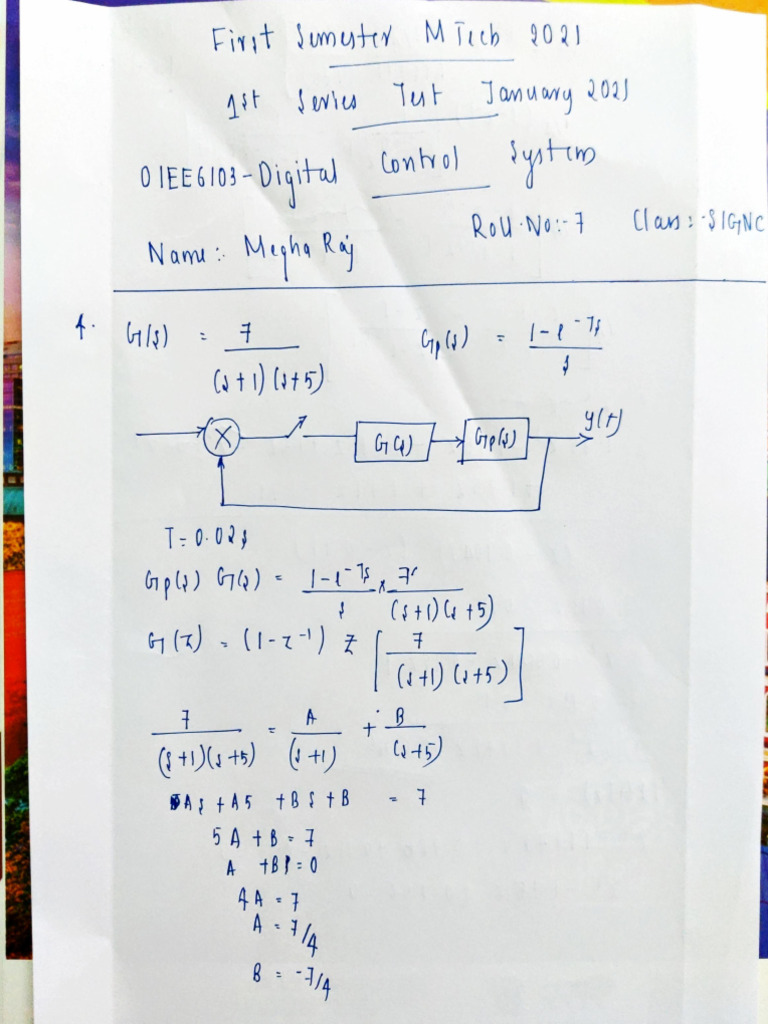 First Semester M Tech 2021
1st Series Test January 2021
01EE6103-Digital Control Systems
Roll.No:-7 Class:-SIGNC
Name:- Megha Raj
4. G(s) = 7 / (s+1)(s+5) Gp(s) = 1-e^-Ts / s
X G(s) Gp(s) y(t)
T=0.02s
Gp(s) G(s) = 1-e^-Ts / s × 7 / (s+1)(s+5)
G(z) = (1-z^-1) Z [7 / (s+1)(s+5)]
7 / (s+1)(s+5) = A / (s+1) + B / (s+5)
As + A5 + Bs + B = 7
5A + B = 7
A + B = 0
4A = 7
A = 7/4
B = -7/4